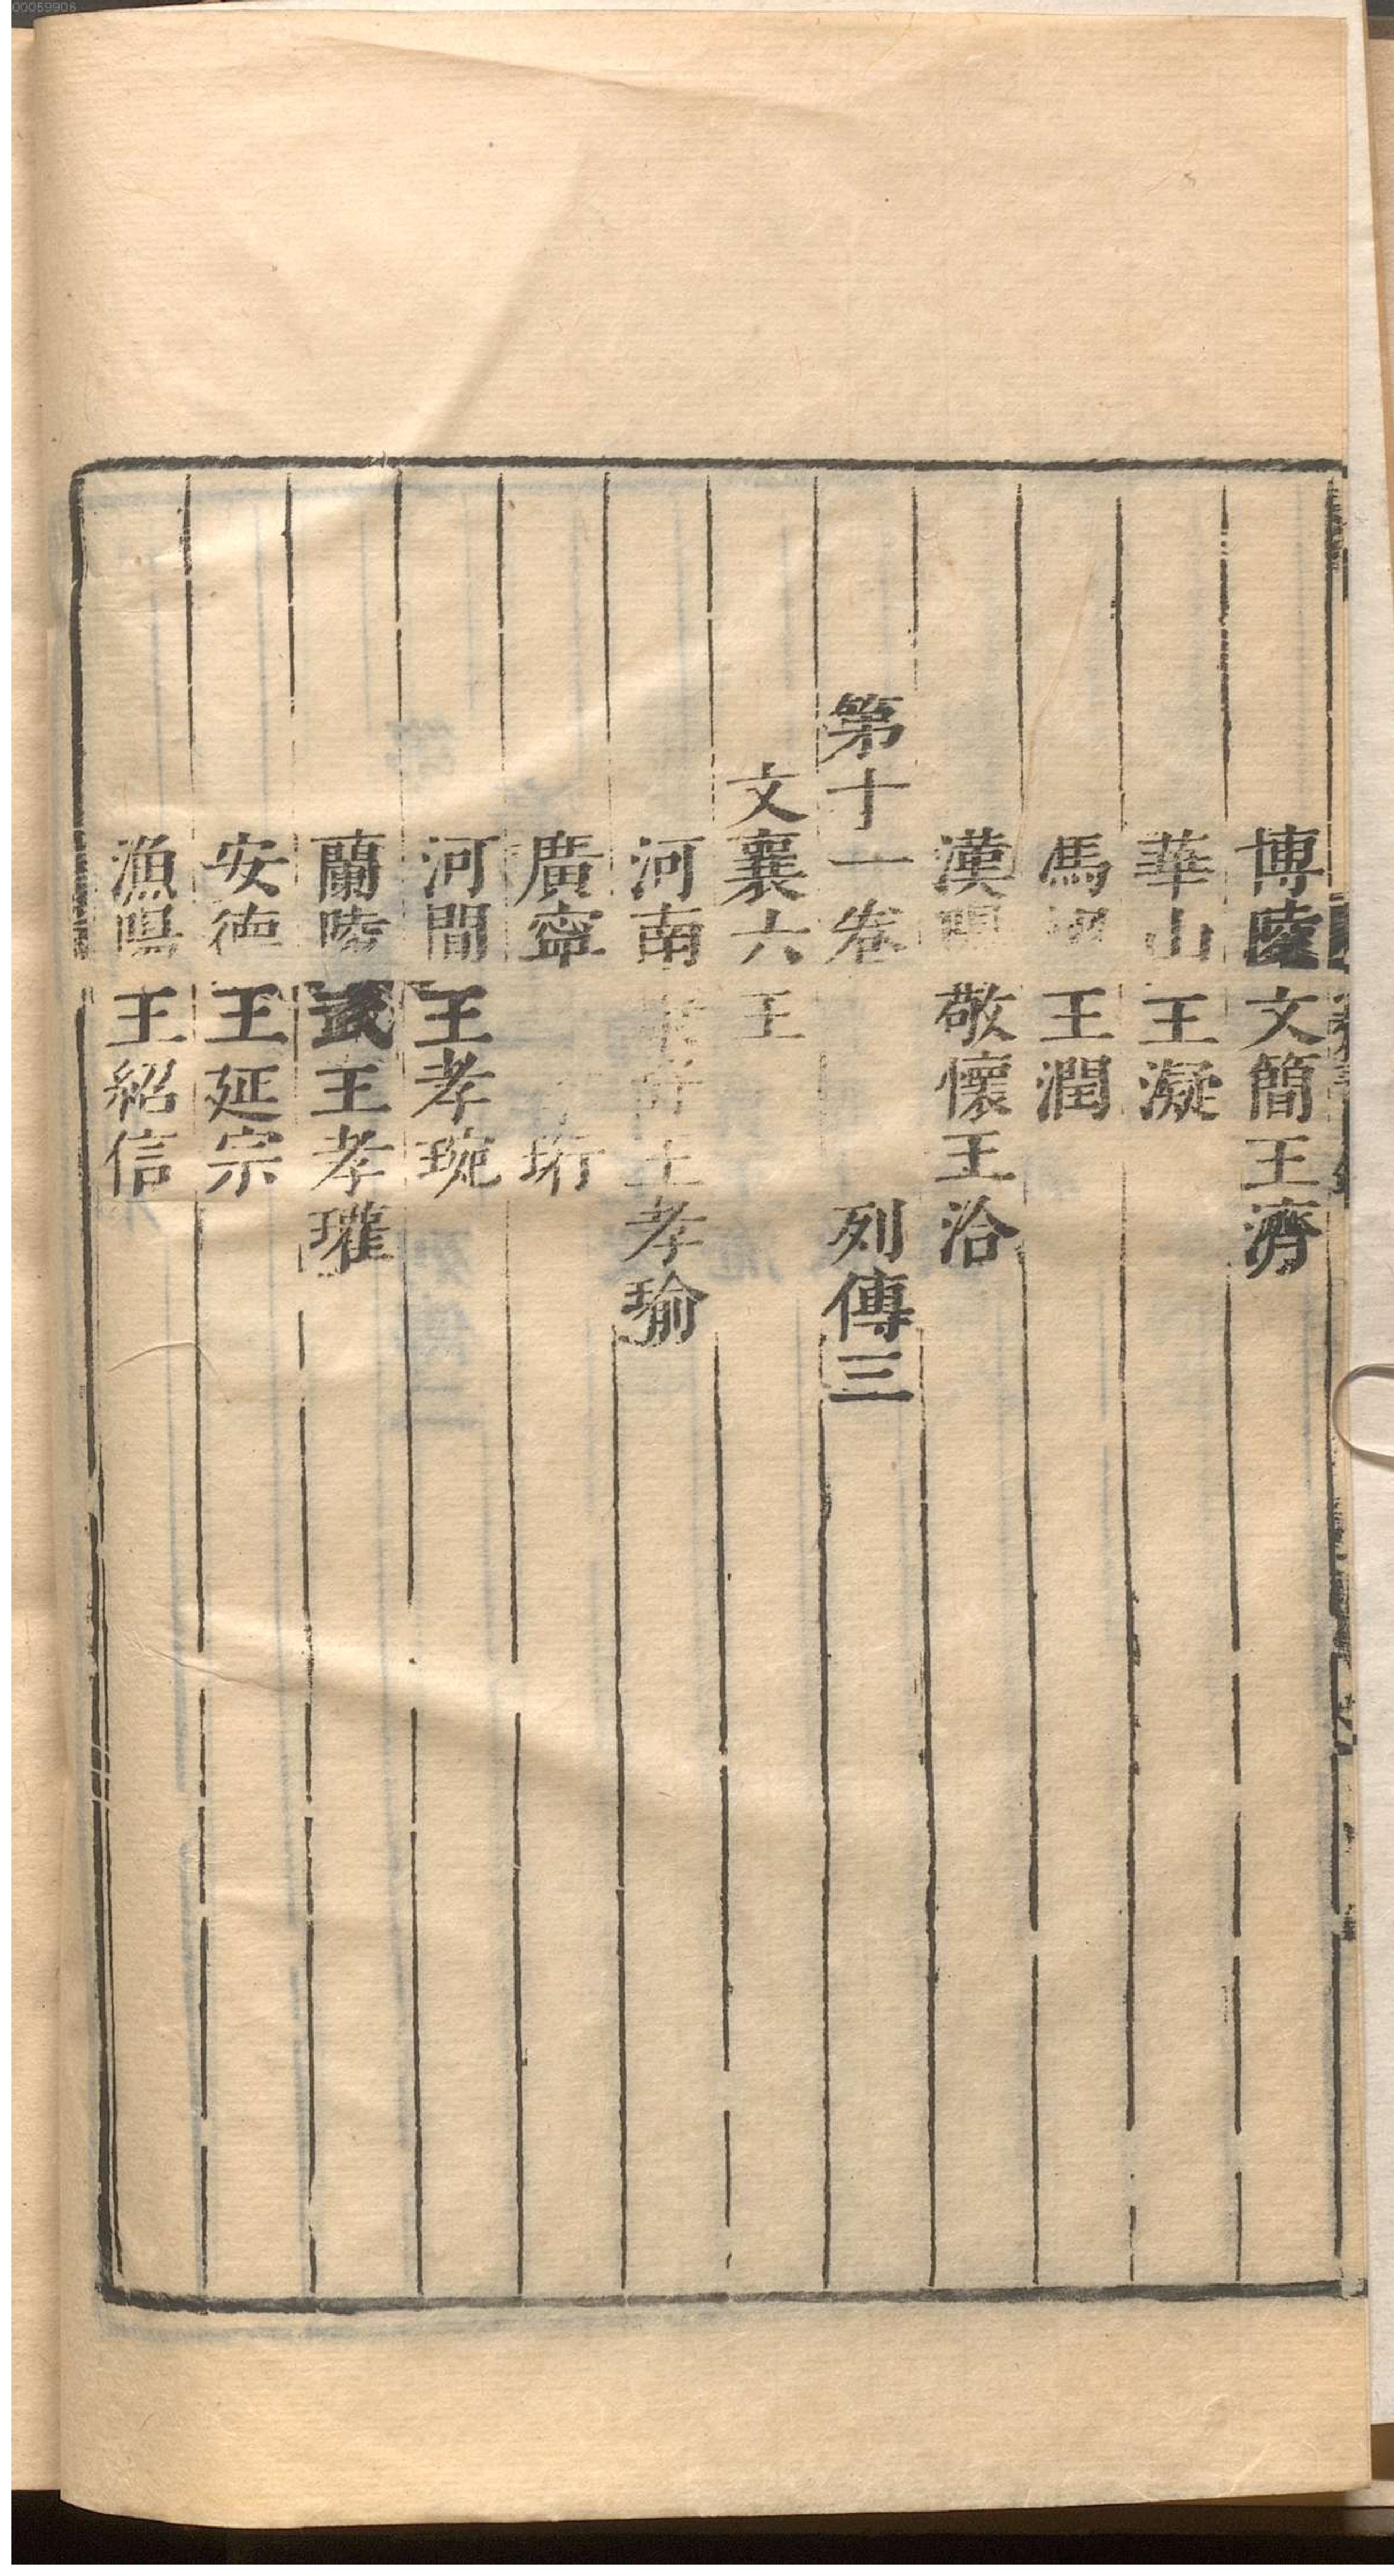 00059906
博陵文簡王濟
華山王凝
馮翊王潤
漢陽敬懷王洽
第十一卷　列傳三
文襄六王
河南王孝瑜
廣寧珩
河間王孝琬
蘭陵武王孝瓘
安德王延宗
漁陽王紹信